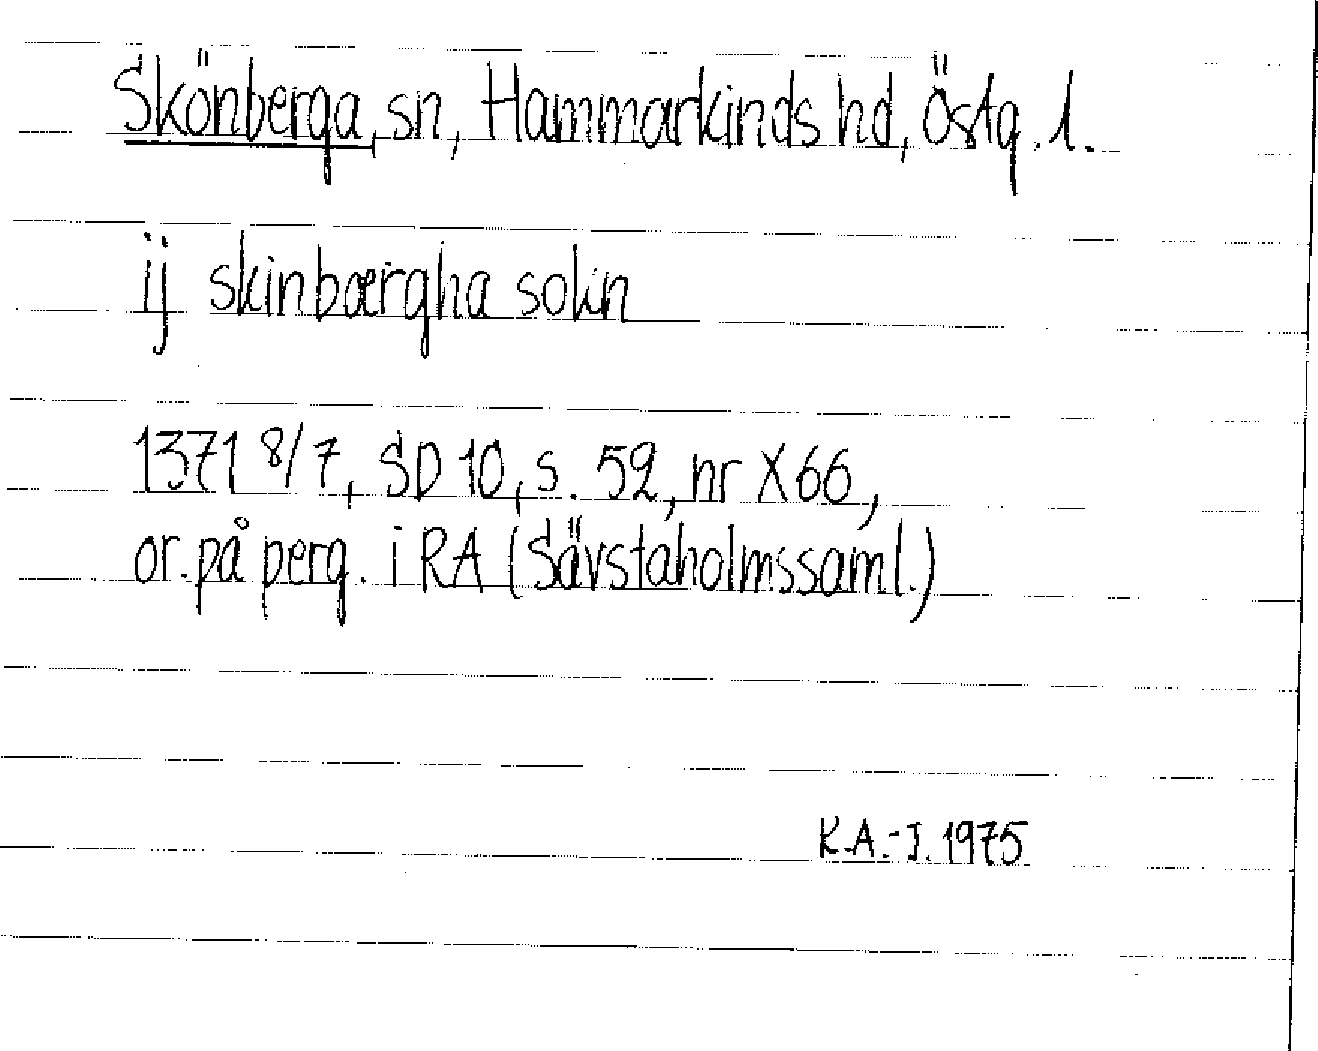 Skönberga, sn, Hammarkinds hd, Östg. l.
ij skinbærgha sokn
1371 8/7, SD 10, s. 52, nr X 66,
or. på perg. i RA (Sävstaholmssaml.)
K.A.-J. 1975